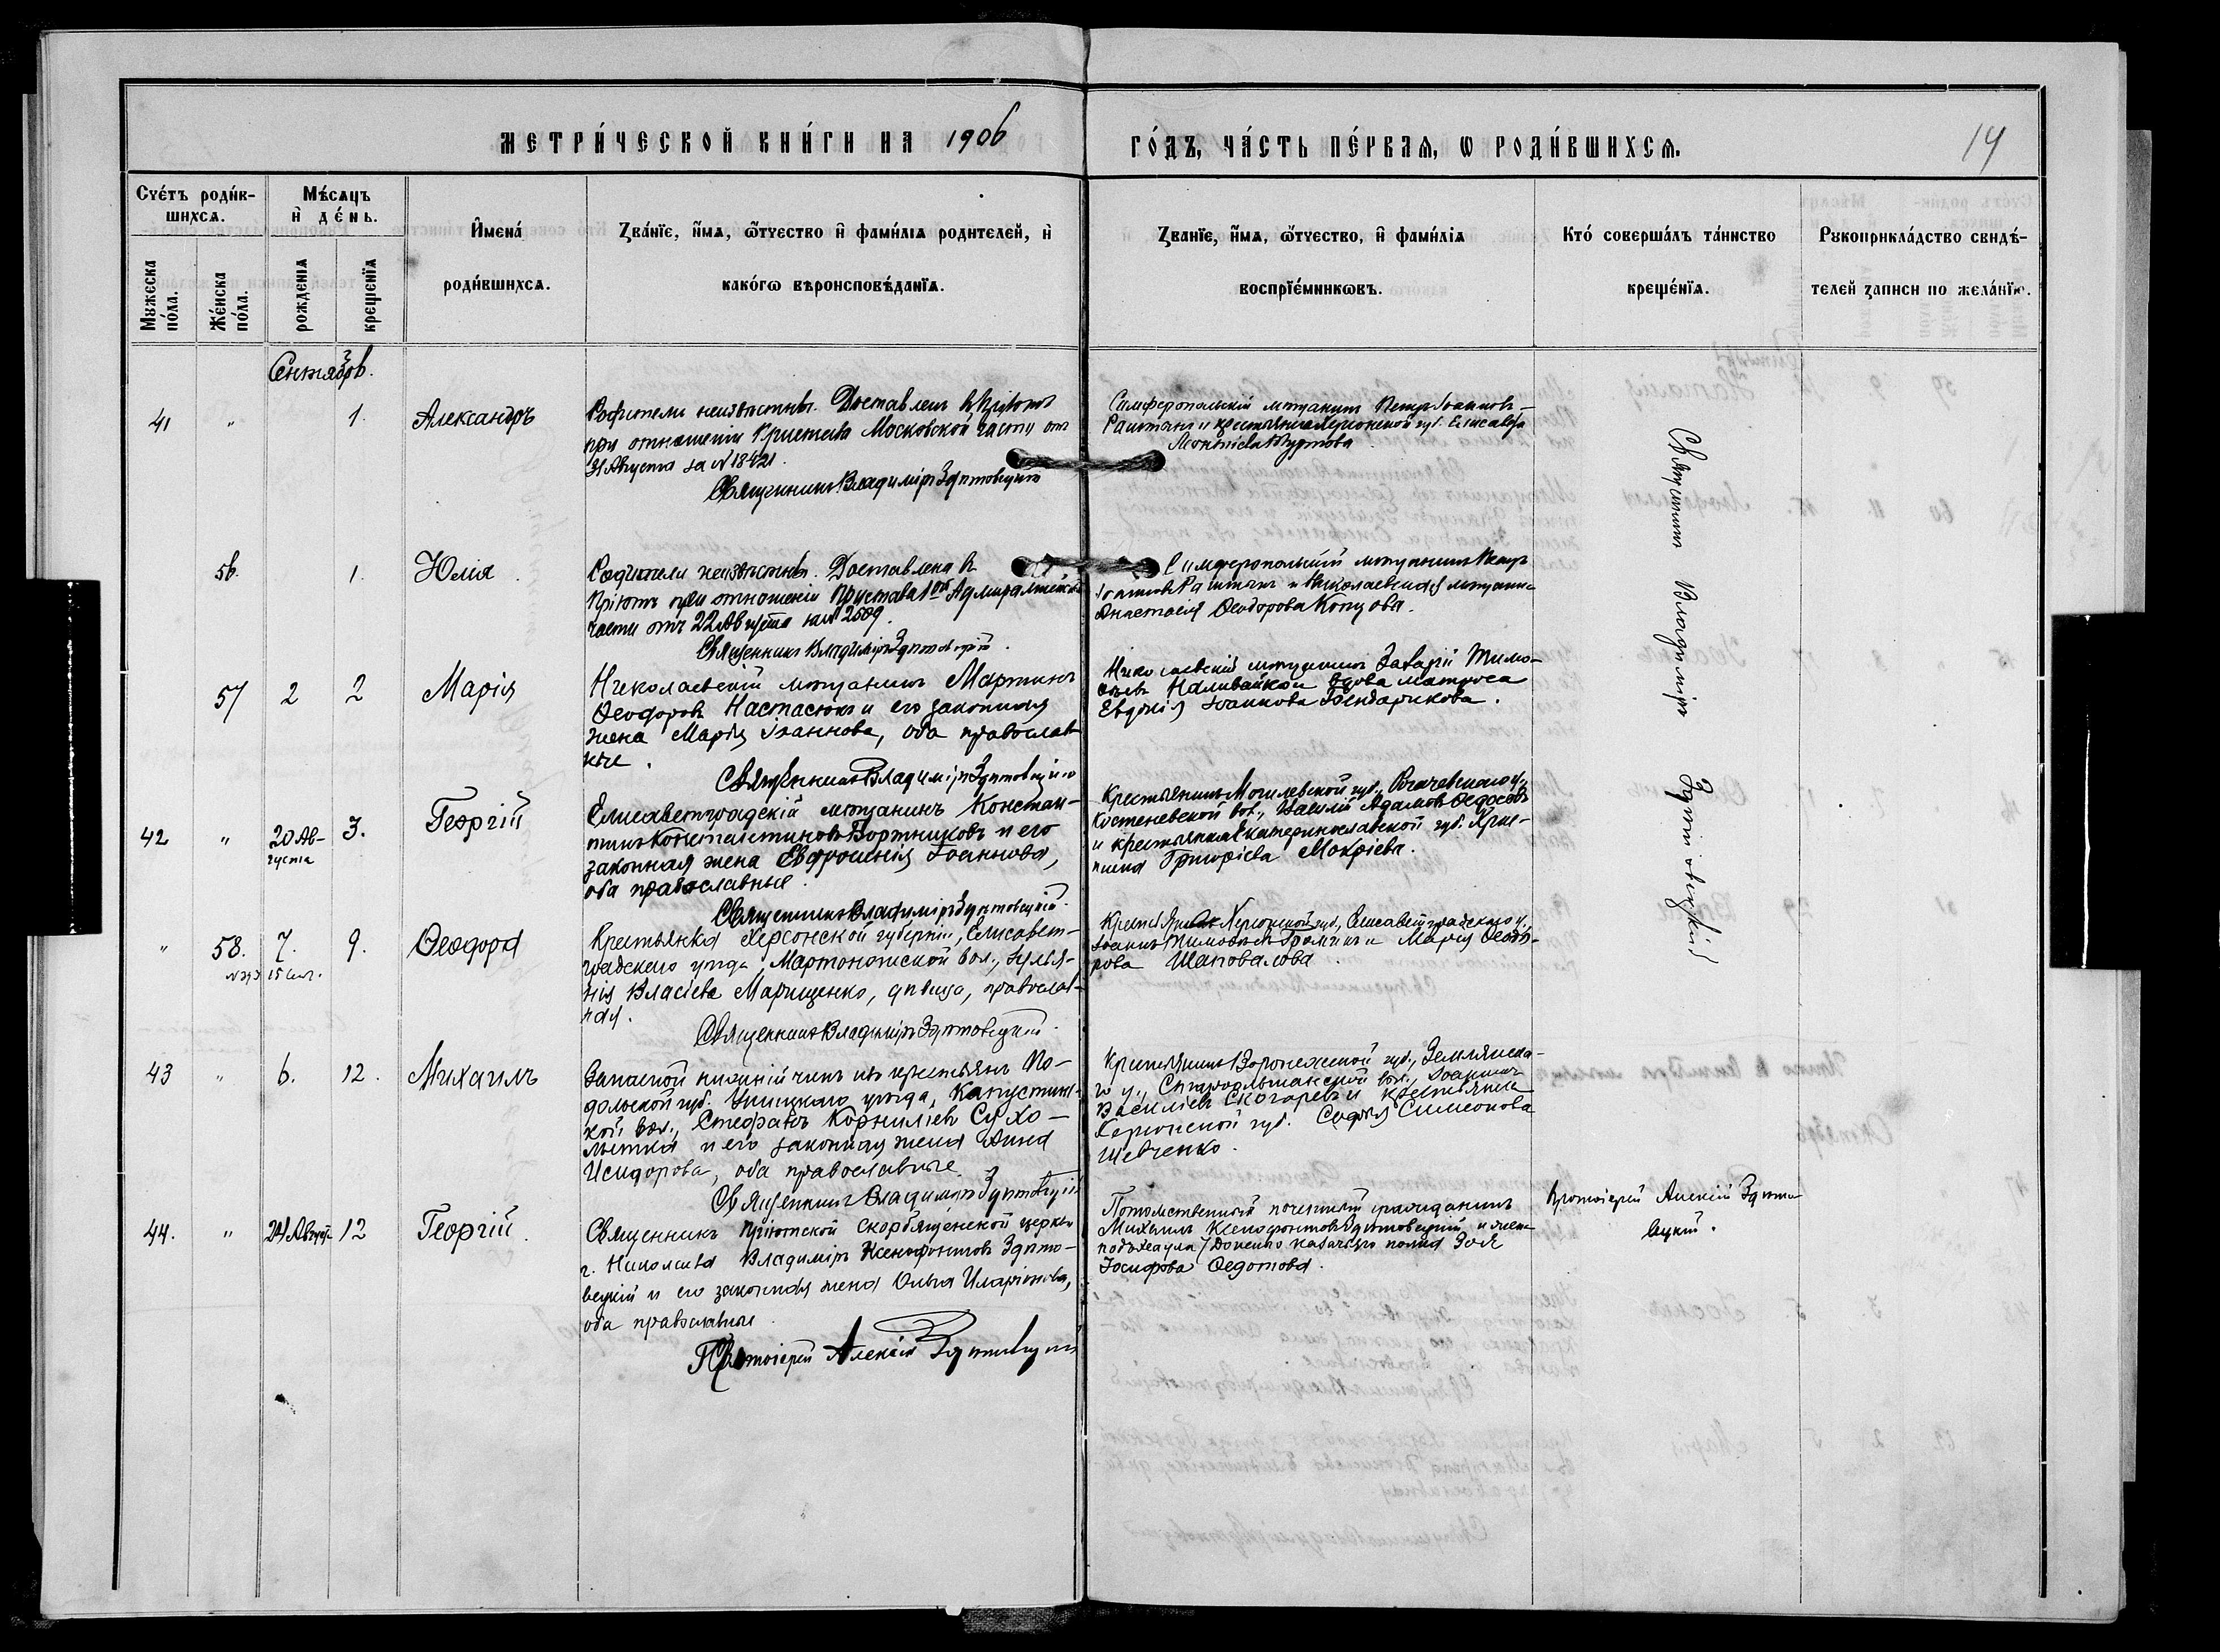 МЕТРИ́ЧЕСКОЙ КНИ́ГИ НА 1906
ГО́ДЪ, ЧА́СТЬ ПЕ́РВАѦ, Ѡ РОДИ́ВШИХСѦ.
14
Счетъ роди́в-
шихсѧ.
Мѣ́сѧцъ
и҆ де́нь.
Мꙋжеска
по́ла.
Же́нска
по́ла.
рожденїѧ
крещенїѧ
И҆мена́
роди́вшихсѧ.
Зва́нїе, и҆́мѧ, ѻ҆́тчество и҆ фами́лїѧ родителей, и҆
како́гѡ вѣроисповѣ́данїѧ.
Зва́нїе, и҆́мѧ, ѻ҆́тчество, и҆ фами́лїѧ
воспрїе́мникѡвъ.
Кто́ соверша́лъ та́инство
креще́нїѧ.
Рꙋкоприкла́дство свидѣ́-
телей записи по жела́нїю.
Сентябрь.
41 " 1. Александръ
Родители неизвѣстны. Доставленъ въ Пріютъ
при отношеніи Пристава Московской части отъ
31 Августа за № 18421.
Священникъ Владиміръ Здитовецкій
Симферопольскій мѣщанинъ Петръ Іоанновъ
и крестьянка Херсонской губ. Елисавета
Леонтіева
56. 1. Юлія.
Родители неизвѣстны. Доставлена въ
Пріютъ при отношеніи Пристава 1ой Адмиралтейской
части отъ 22 Августа за № 2609.
Священникъ Владиміръ Здитовецкій.
Симферопольскій мѣщанинъ Петръ
Іоанновъ и Николаевская мѣщанка
Анастасія Ѳеодорова Копцова.
57 2 2 Марія
Николаевскій мѣщанинъ Мартинъ
Ѳеодоровъ Настасюкъ и его законная
жена Марія Іоаннова, оба православ-
ные.
Священникъ Владиміръ Здитовецкій
Николаевскій мѣщанинъ Захарій Тимо-
ѳеевъ Наливайко и вдова матроса
Евдокія Іоаннова Бендарикова.
42 " 20 Ав-
густа 3. Георгій
Елисаветградскій мѣщанинъ Констан-
тинъ Константиновъ Бортниковъ и его
законная жена Евфросинія Іоаннова,
оба православные.
Священникъ Владиміръ Здитовецкій.
Крестьянинъ Могилевской губ., Рогачевскаго у.,
Костеневской вол., Василій Адамовъ Ѳедосовъ
и крестьянка Екатеринославской губ. Хрис-
тина Григоріева Мокріева.
" 58. 7. 9. Ѳеодора
Крестьянка Херсонской губерніи, Елисавет-
градскаго уѣзда, Мартоношской вол., Іуліа-
нія Власіева Марищенко, дѣвица, православ-
ная.
Священникъ Владиміръ Здитовецкій.
Крестьянинъ Херсонской губ., Елисаветградскаго у.,
Іоаннъ Тимоѳеевъ и Марія Ѳеодо-
рова Шаповалова.
43 " 6. 12. Михаилъ
Запасной нижній чинъ изъ крестьянъ По-
дольской губ. Ушицкаго уѣзда, Капустян-
ской вол., Стефанъ Корниліевъ Сухо-
лытка и его законная жена Анна
Исидорова, оба православные.
Священникъ Владиміръ Здитовецкій
Крестьянинъ Воронежской губ., Землянска-
го у., Староольшанской вол., Іоаннъ
Василіевъ Скогаревъ и крестьянка
Херсонской губ. Софія Симеонова
Шевченко.
Священникъ Владиміръ Здитовецкій
44. " 24 Август. 12 Георгій.
Священникъ Пріютской Скорбященской церкви
г. Николаева Владиміръ Ксенофонтовъ Здито-
вецкій и его законная жена Ольга Иларіонова,
оба православные.
Протоіерей Алексій Здитовецкій
Потомственный почетный гражданинъ
Михаилъ Ксенофонтовъ Здитовецкій и жена
подъесаула Донского казачьяго полка Зоя
Іосифова Ѳедотова.
Протоіерей Алексій Здито-
вецкій.